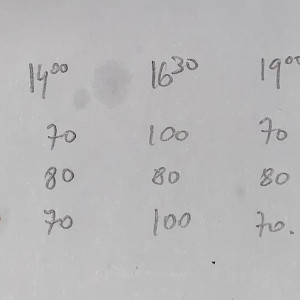 14⁰⁰ 16³⁰ 19⁰⁰
70 100 70
80 80 80
70 100 70.